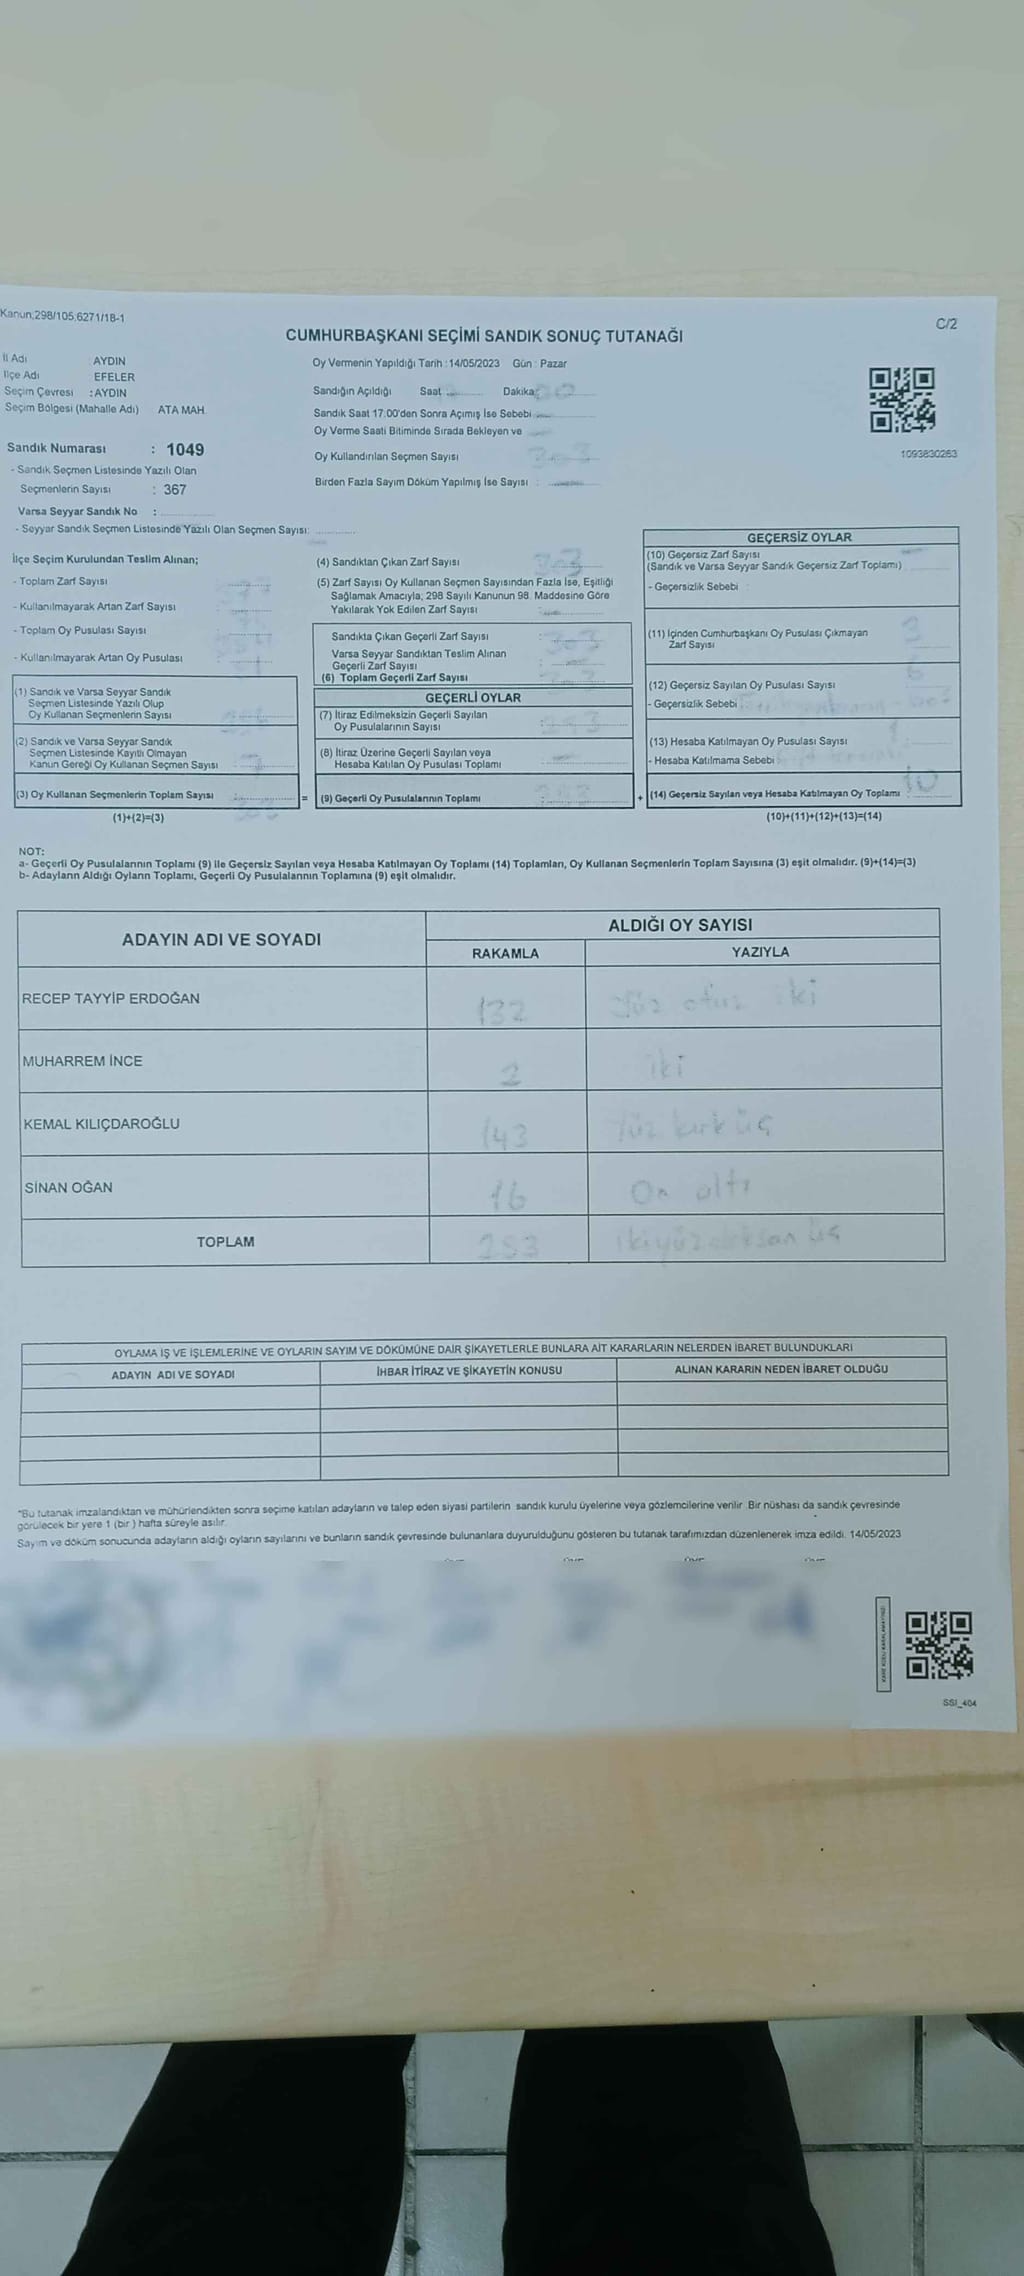 Kanun;298/105;6271/18-1
C/2
CUMHURBAŞKANI SEÇİMİ SANDIK SONUÇ TUTANAĞI
İl Adı AYDIN
İlçe Adı EFELER
Seçim Çevresi : AYDIN
Seçim Bölgesi (Mahalle Adı) ATA MAH.
Sandık Numarası : 1049
- Sandık Seçmen Listesinde Yazılı Olan
Seçmenlerin Sayısı : 367
Varsa Seyyar Sandık No :
- Seyyar Sandık Seçmen Listesinde Yazılı Olan Seçmen Sayısı:
Oy Vermenin Yapıldığı Tarih : 14/05/2023 Gün : Pazar
Sandığın Açıldığı Saat Dakika 00
Sandık Saat 17:00'den Sonra Açımış İse Sebebi
Oy Verme Saati Bitiminde Sırada Bekleyen ve
Oy Kullandırılan Seçmen Sayısı 303
Birden Fazla Sayım Döküm Yapılmış İse Sayısı :
1093830263
İlçe Seçim Kurulundan Teslim Alınan;
- Toplam Zarf Sayısı
- Kullanılmayarak Artan Zarf Sayısı
- Toplam Oy Pusulası Sayısı
- Kullanılmayarak Artan Oy Pusulası
(1) Sandık ve Varsa Seyyar Sandık
Seçmen Listesinde Yazılı Olup
Oy Kullanan Seçmenlerin Sayısı 296
(2) Sandık ve Varsa Seyyar Sandık
Seçmen Listesinde Kayıtlı Olmayan
Kanun Gereği Oy Kullanan Seçmen Sayısı : 7
(3) Oy Kullanan Seçmenlerin Toplam Sayısı : 303 =
(1)+(2)=(3)
(4) Sandıktan Çıkan Zarf Sayısı 303
(5) Zarf Sayısı Oy Kullanan Seçmen Sayısından Fazla İse, Eşitliği
Sağlamak Amacıyla; 298 Sayılı Kanunun 98. Maddesine Göre
Yakılarak Yok Edilen Zarf Sayısı :
Sandıkta Çıkan Geçerli Zarf Sayısı : 303
Varsa Seyyar Sandıktan Teslim Alınan
Geçerli Zarf Sayısı :
(6) Toplam Geçerli Zarf Sayısı : 303
GEÇERLİ OYLAR
(7) İtiraz Edilmeksizin Geçerli Sayılan
Oy Pusulalarının Sayısı : 293
(8) İtiraz Üzerine Geçerli Sayılan veya
Hesaba Katılan Oy Pusulası Toplamı :
(9) Geçerli Oy Pusulalarının Toplamı : 293 +
GEÇERSİZ OYLAR
(10) Geçersiz Zarf Sayısı
(Sandık ve Varsa Seyyar Sandık Geçersiz Zarf Toplamı)
- Geçersizlik Sebebi :
(11) İçinden Cumhurbaşkanı Oy Pusulası Çıkmayan
Zarf Sayısı 3
(12) Geçersiz Sayılan Oy Pusulası Sayısı : 6
- Geçersizlik Sebebi
(13) Hesaba Katılmayan Oy Pusulası Sayısı : 1
- Hesaba Katılmama Sebebi
(14) Geçersiz Sayılan veya Hesaba Katılmayan Oy Toplamı : 10
(10)+(11)+(12)+(13)=(14)
NOT:
a- Geçerli Oy Pusulalarının Toplamı (9) ile Geçersiz Sayılan veya Hesaba Katılmayan Oy Toplamı (14) Toplamları, Oy Kullanan Seçmenlerin Toplam Sayısına (3) eşit olmalıdır. (9)+(14)=(3)
b- Adayların Aldığı Oyların Toplamı, Geçerli Oy Pusulalarının Toplamına (9) eşit olmalıdır.
ADAYIN ADI VE SOYADI
ALDIĞI OY SAYISI
RAKAMLA YAZIYLA
RECEP TAYYİP ERDOĞAN 132 Yüz otuz iki
MUHARREM İNCE 2 iki
KEMAL KILIÇDAROĞLU 143 Yüz kırk üç
SİNAN OĞAN 16 On altı
TOPLAM 293 ikiyüzdoksan üç
OYLAMA İŞ VE İŞLEMLERİNE VE OYLARIN SAYIM VE DÖKÜMÜNE DAİR ŞİKAYETLERLE BUNLARA AİT KARARLARIN NELERDEN İBARET BULUNDUKLARI
ADAYIN ADI VE SOYADI İHBAR İTİRAZ VE ŞİKAYETİN KONUSU ALINAN KARARIN NEDEN İBARET OLDUĞU
*Bu tutanak imzalandıktan ve mühürlendikten sonra seçime katılan adayların ve talep eden siyasi partilerin sandık kurulu üyelerine veya gözlemcilerine verilir. Bir nüshası da sandık çevresinde
görülecek bir yere 1 (bir) hafta süreyle asılır.
Sayım ve döküm sonucunda adayların aldığı oyların sayılarını ve bunların sandık çevresinde bulunanlara duyurulduğunu gösteren bu tutanak tarafımızdan düzenlenerek imza edildi. 14/05/2023
SSI_404